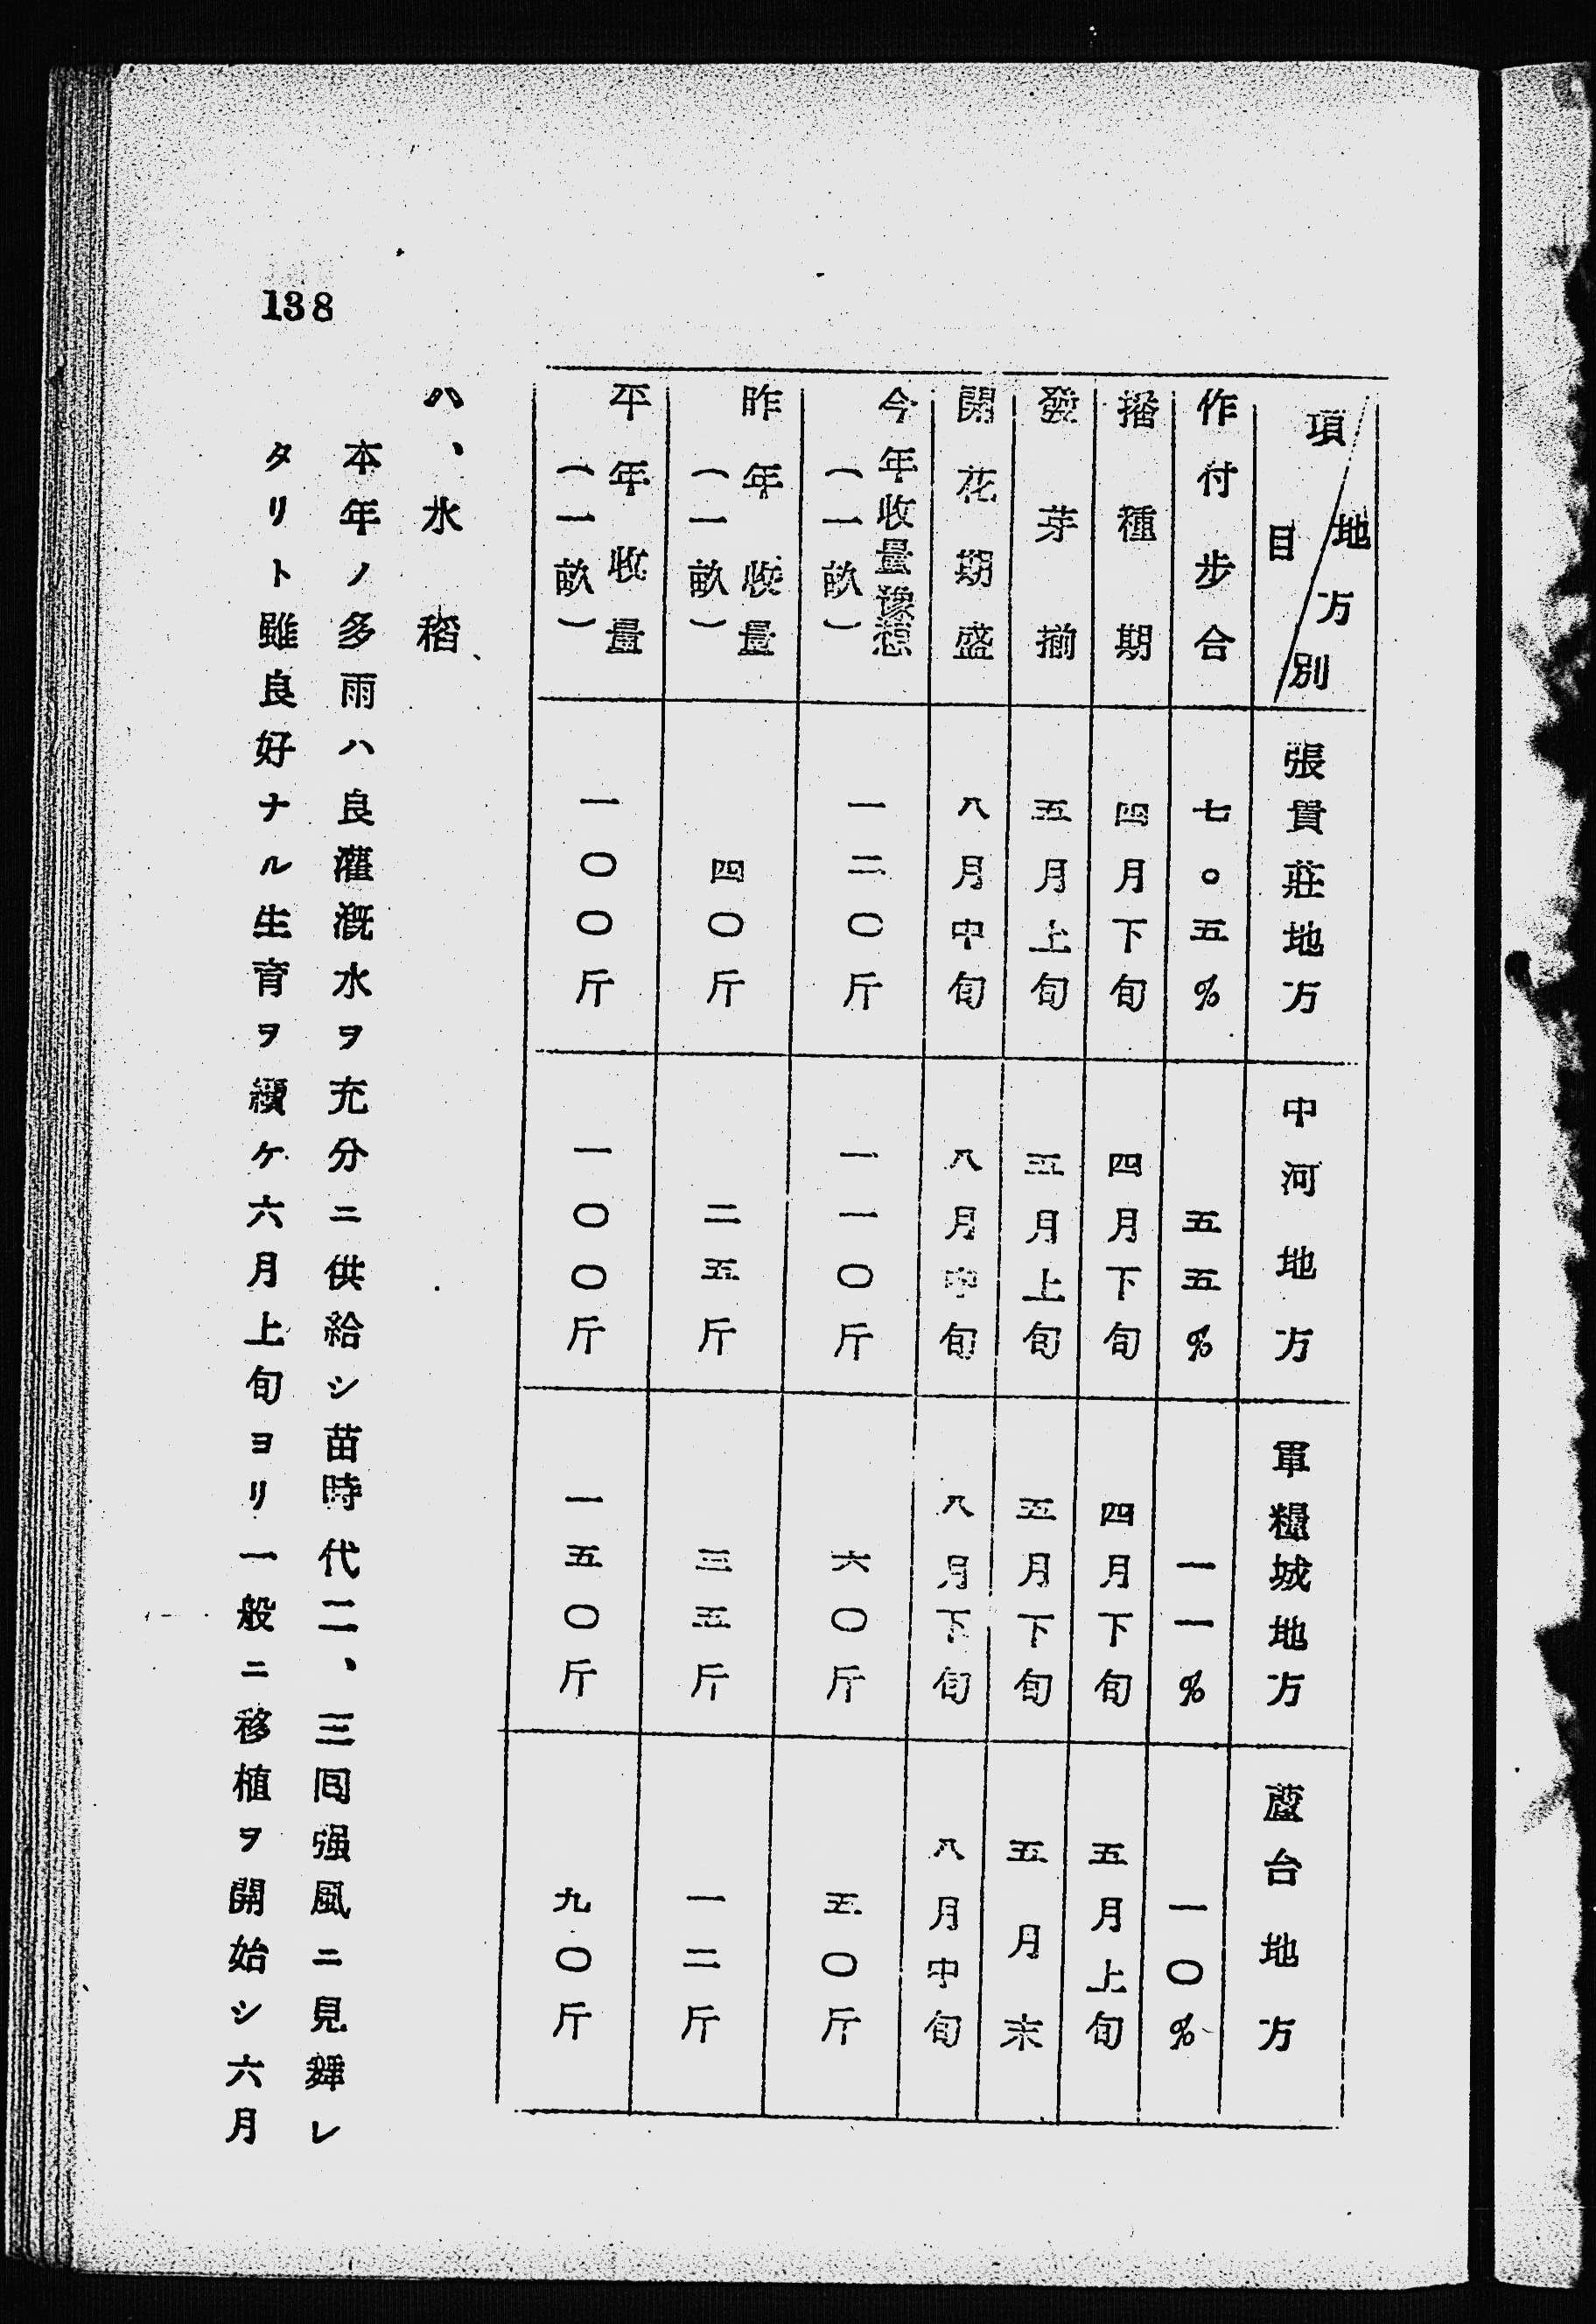 138
項目／地方別　張貴莊地方　中河地方　軍糧城地方　蘆台地方
作付步合　七〇五%　五五%　一一%　一〇%
播種期　四月下旬　四月下旬　四月下旬　五月上旬
發芽揃　五月上旬　五月上旬　五月下旬　五月末
開花期盛　八月中旬　八月中旬　八月下旬　八月中旬
今年收量豫想（一畝）　一二〇斤　一一〇斤　六〇斤　五〇斤
昨年收量（一畝）　四〇斤　二五斤　三五斤　一二斤
平年收量（一畝）　一〇〇斤　一〇〇斤　一五〇斤　九〇斤
ハ、水稻、
本年ノ多雨ハ良灌漑水ヲ充分ニ供給シ苗時代二、三囘强風ニ見舞レ
タリト雖良好ナル生育ヲ續ケ六月上旬ヨリ一般ニ移植ヲ開始シ六月